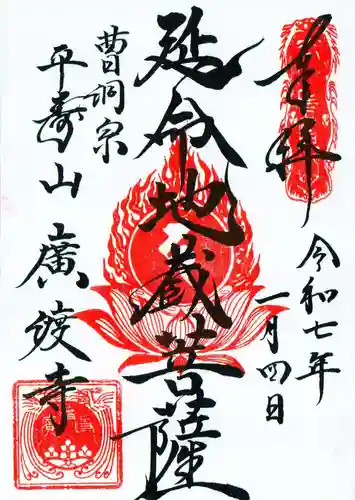 奉拝
令和七年
一月四日
延命地蔵菩薩
曹洞宗
平壽山
廣渡寺